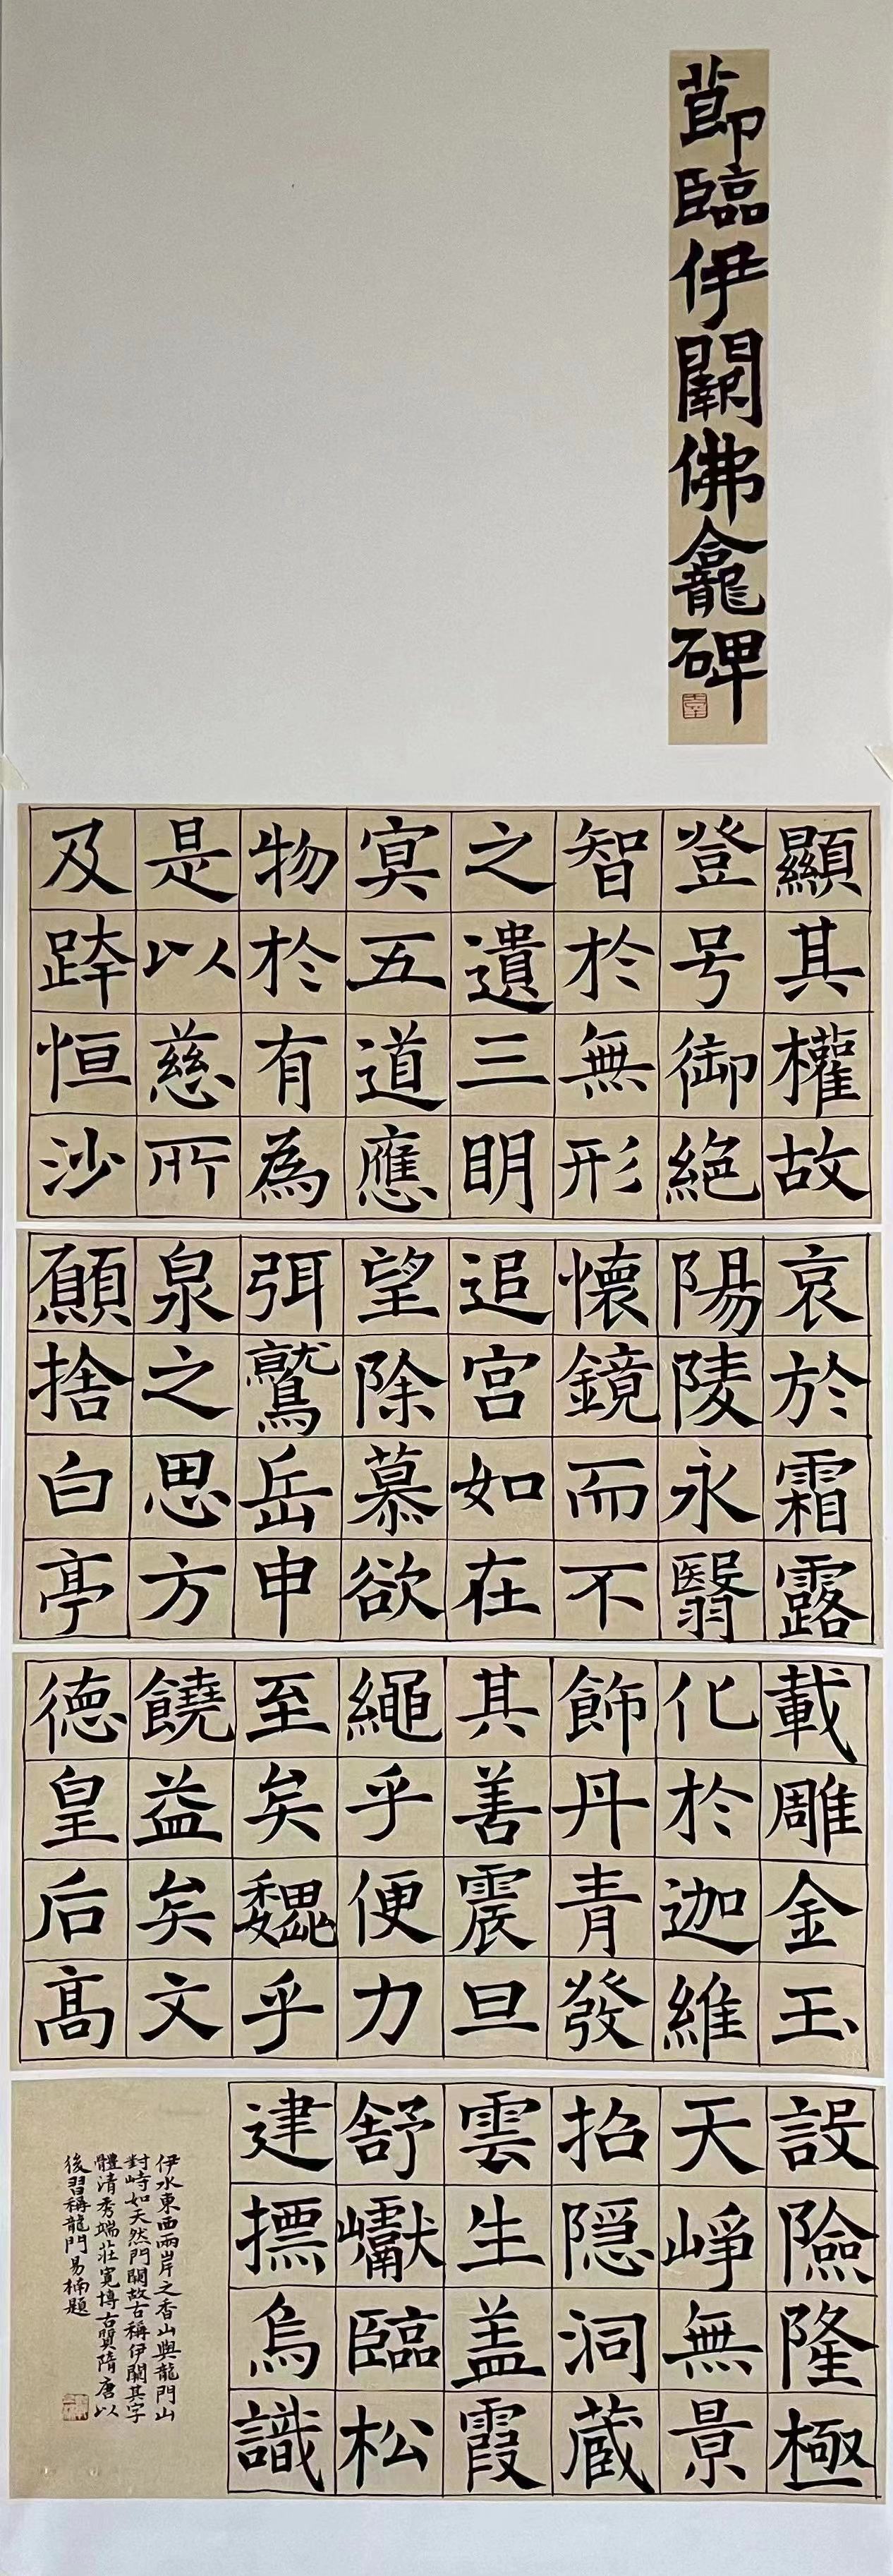 節臨伊闕佛龕碑
顯其權故
登号御絕
智於無形
之遺三明
冥五道應
物於有為
是以慈所
及跨恒沙
哀於霜露
陽陵永翳
懷鏡而不
追宮如在
望除慕欲
弭鷲岳申
泉之思方
願捨白亭
載雕金玉
化於迦維
飾丹青發
其善震旦
繩乎便力
至矣巍乎
饒益矣文
德皇后高
設險隆極
天崢無景
招隱洞藏
雲生盖霞
舒巘臨松
建摽鳥識
伊水東西兩岸之香山與龍門山
對峙如天然門闕故古稱伊闕其字
體清秀端莊寬博古質隋唐以
後習稱龍門易楠題